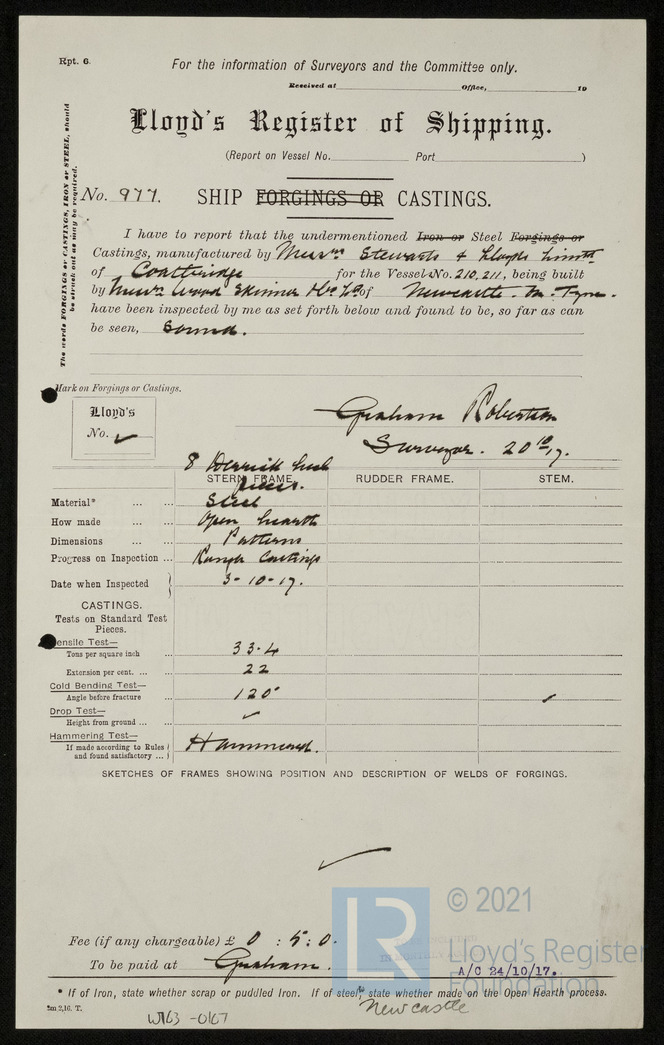 Rpt. 6.
For the information of Surveyors and the Committee only.
Received at Office, 19
Lloyd's Register of Shipping.
(Report on Vessel No. Port )
The words FORGINGS or CASTINGS, IRON or STEEL, should
be struck out as may be required.
No. 977. SHIP FORGINGS OR CASTINGS.
I have to report that the undermentioned Iron or Steel Forgings or
Castings, manufactured by Messrs Stewarts & Lloyds Limtd
of Coatbridge for the Vessel No. 210, 211, being built
by Messrs Wood Skinner & Co Ld of Newcastle-on-Tyne.
have been inspected by me as set forth below and found to be, so far as can
be seen, Sound.
Mark on Forgings or Castings.
Lloyd's
No. ✓
Graham Robertson
Surveyor. 20 10 17.
8 Derrick heel
pieces.
STERN FRAME. RUDDER FRAME. STEM.
Material* ... ... Steel
How made ... ... Open hearth
Dimensions ... ... Patterns
Progress on Inspection ... Rough Castings
Date when Inspected 3-10-17.
CASTINGS.
Tests on Standard Test
Pieces.
Tensile Test—
Tons per square inch ... 33.4
Extension per cent. ... ... 22
Cold Bending Test—
Angle before fracture ... 120° ✓
Drop Test—
Height from ground ... ... ✓
Hammering Test—
If made according to Rules
and found satisfactory ... Hammered.
SKETCHES OF FRAMES SHOWING POSITION AND DESCRIPTION OF WELDS OF FORGINGS.
✓
Fee (if any chargeable) £ 0 : 5 : 0.
To be paid at Graham.
A/C 24/10/17.
* If of Iron, state whether scrap or puddled Iron. If of steel, state whether made on the Open Hearth process.
5m 2,16. T.
Newcastle
W163-0167
LR
© 2021
Lloyd's Register
Foundation